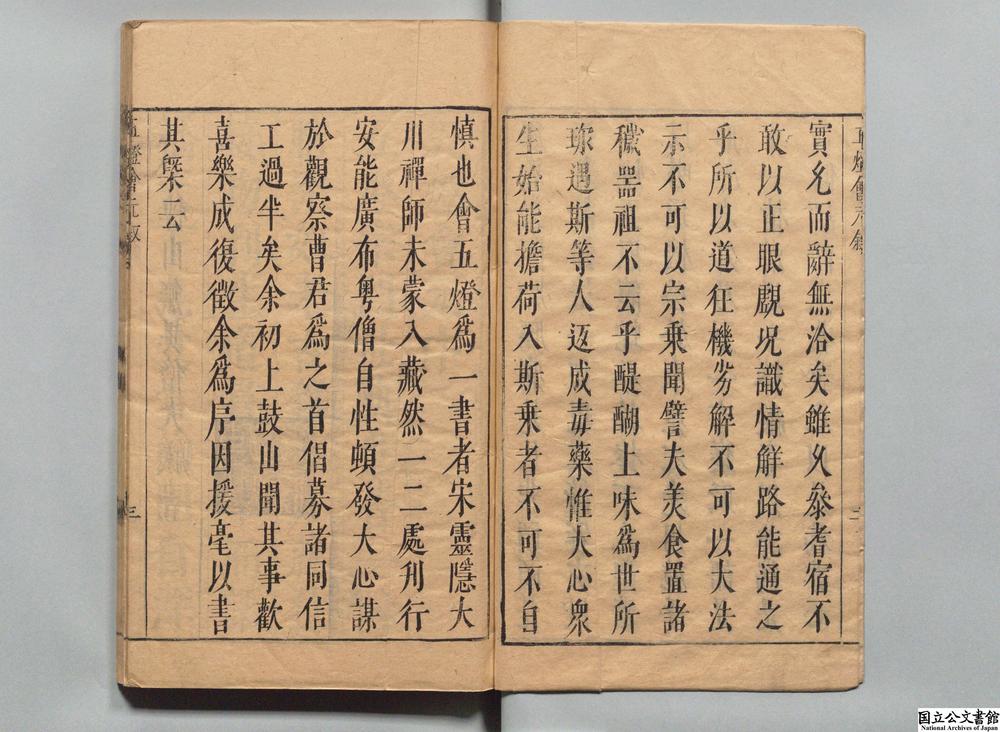 實允而辭無洽矣雖久參耆宿不
敢以正眼覷況識情解路能通之
乎所以道狂機劣解不可以大法
示不可以宗乘聞譬夫美食置諸
穢噐祖不云乎醍醐上味為世所
珍遇斯等人返成毒藥惟大心眾
生始能擔荷入斯乘者不可不自
慎也會五燈爲一書者宋靈隱大
川禪師未蒙入藏然一二處刋行
安能廣布粤僧自性頓發大心謀
於觀察曹君爲之首倡募諸同信
工過半矣余初上鼓山聞其事歡
喜樂成復徵余爲序因援毫以書
其槩云
五燈會元叙
三
国立公文書館
National Archives of Japan